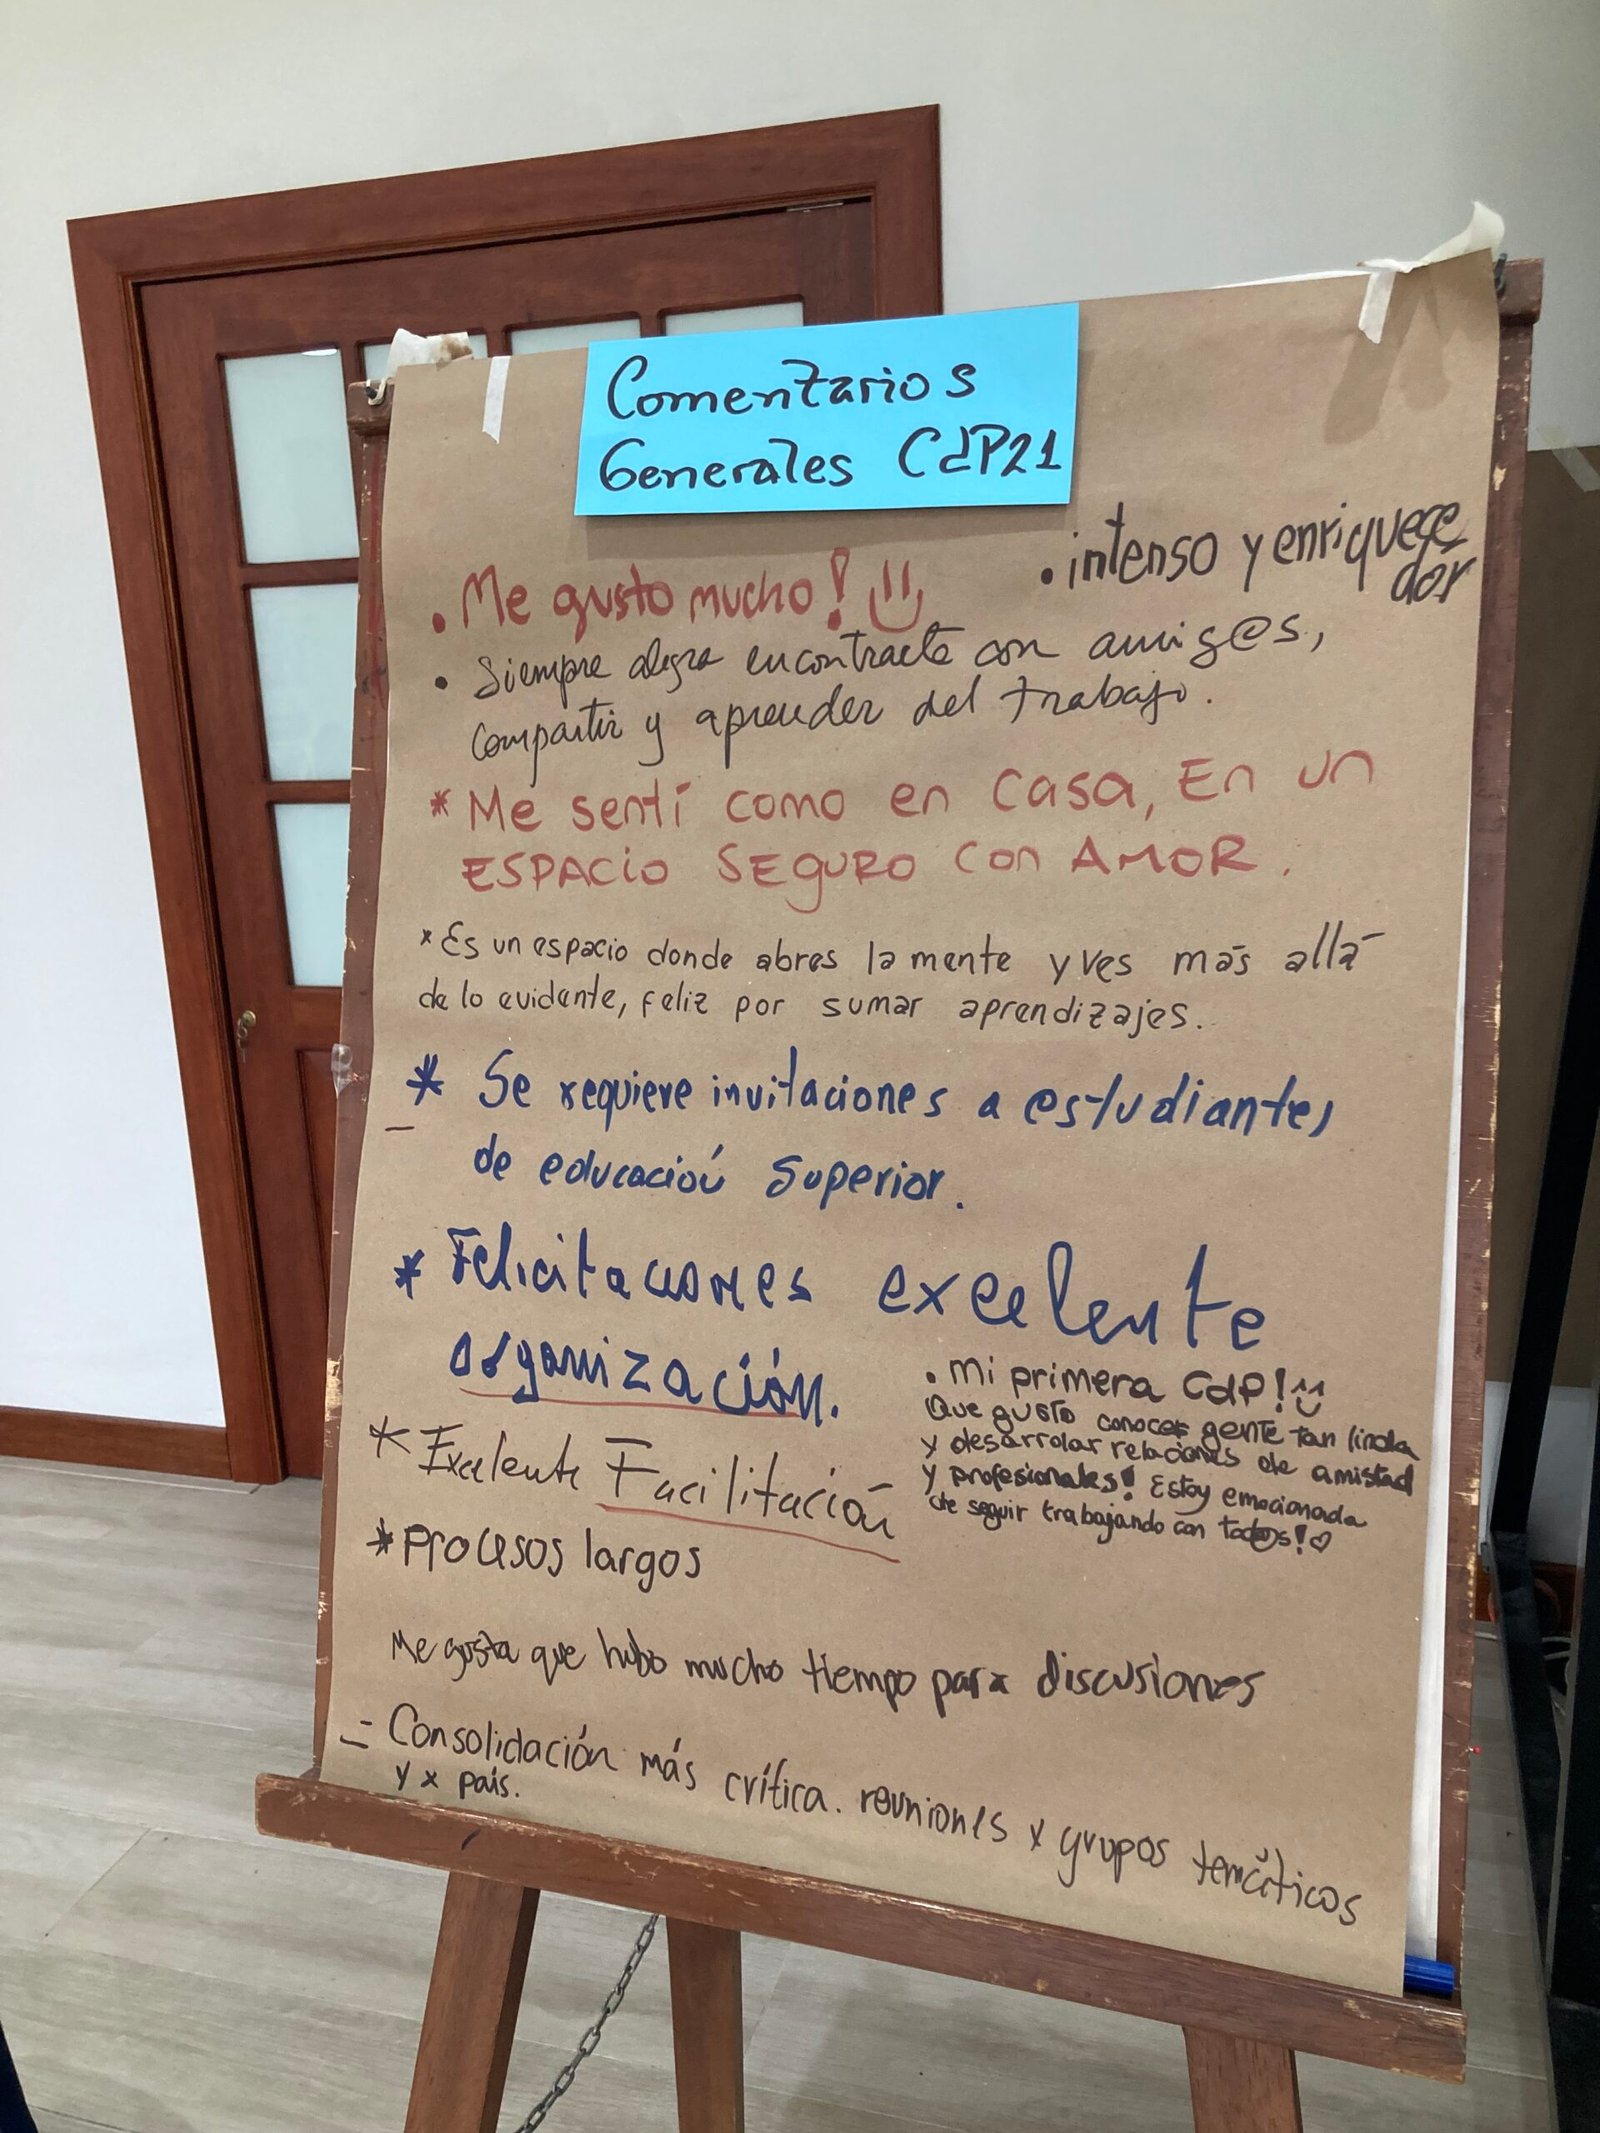 Comentarios
Generales CdP21
• Me gusto mucho!
• intenso y enriquece
dor
• Siempre alegra encontrarte con amig@s,
compartir y aprender del trabajo.
* Me sentí como en casa, En un
ESPACIO SEGURO CON AMOR.
* Es un espacio donde abres la mente y ves más allá
de lo evidente, feliz por sumar aprendizajes.
* Se requiere invitaciones a estudiantes
de educación superior.
* Felicitaciones excelente
organización.
* Excelente Facilitación
* Procesos largos
• Mi primera CdP!
Que gusto conocer gente tan linda
y desarrolar relaciones de amistad
y profesionales! Estoy emocionada
de seguir trabajando con tod@s! ♡
Me gusta que hubo mucho tiempo para discusiones
- Consolidación más crítica. reuniones x grupos temáticos
y x país.